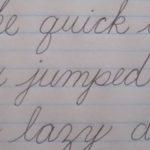 he quick
jumped
lazy d